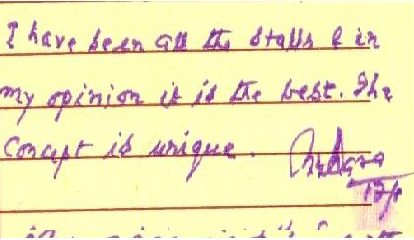 I have been all the stalls & in
my opinion it is the best. The
Concept is unique.